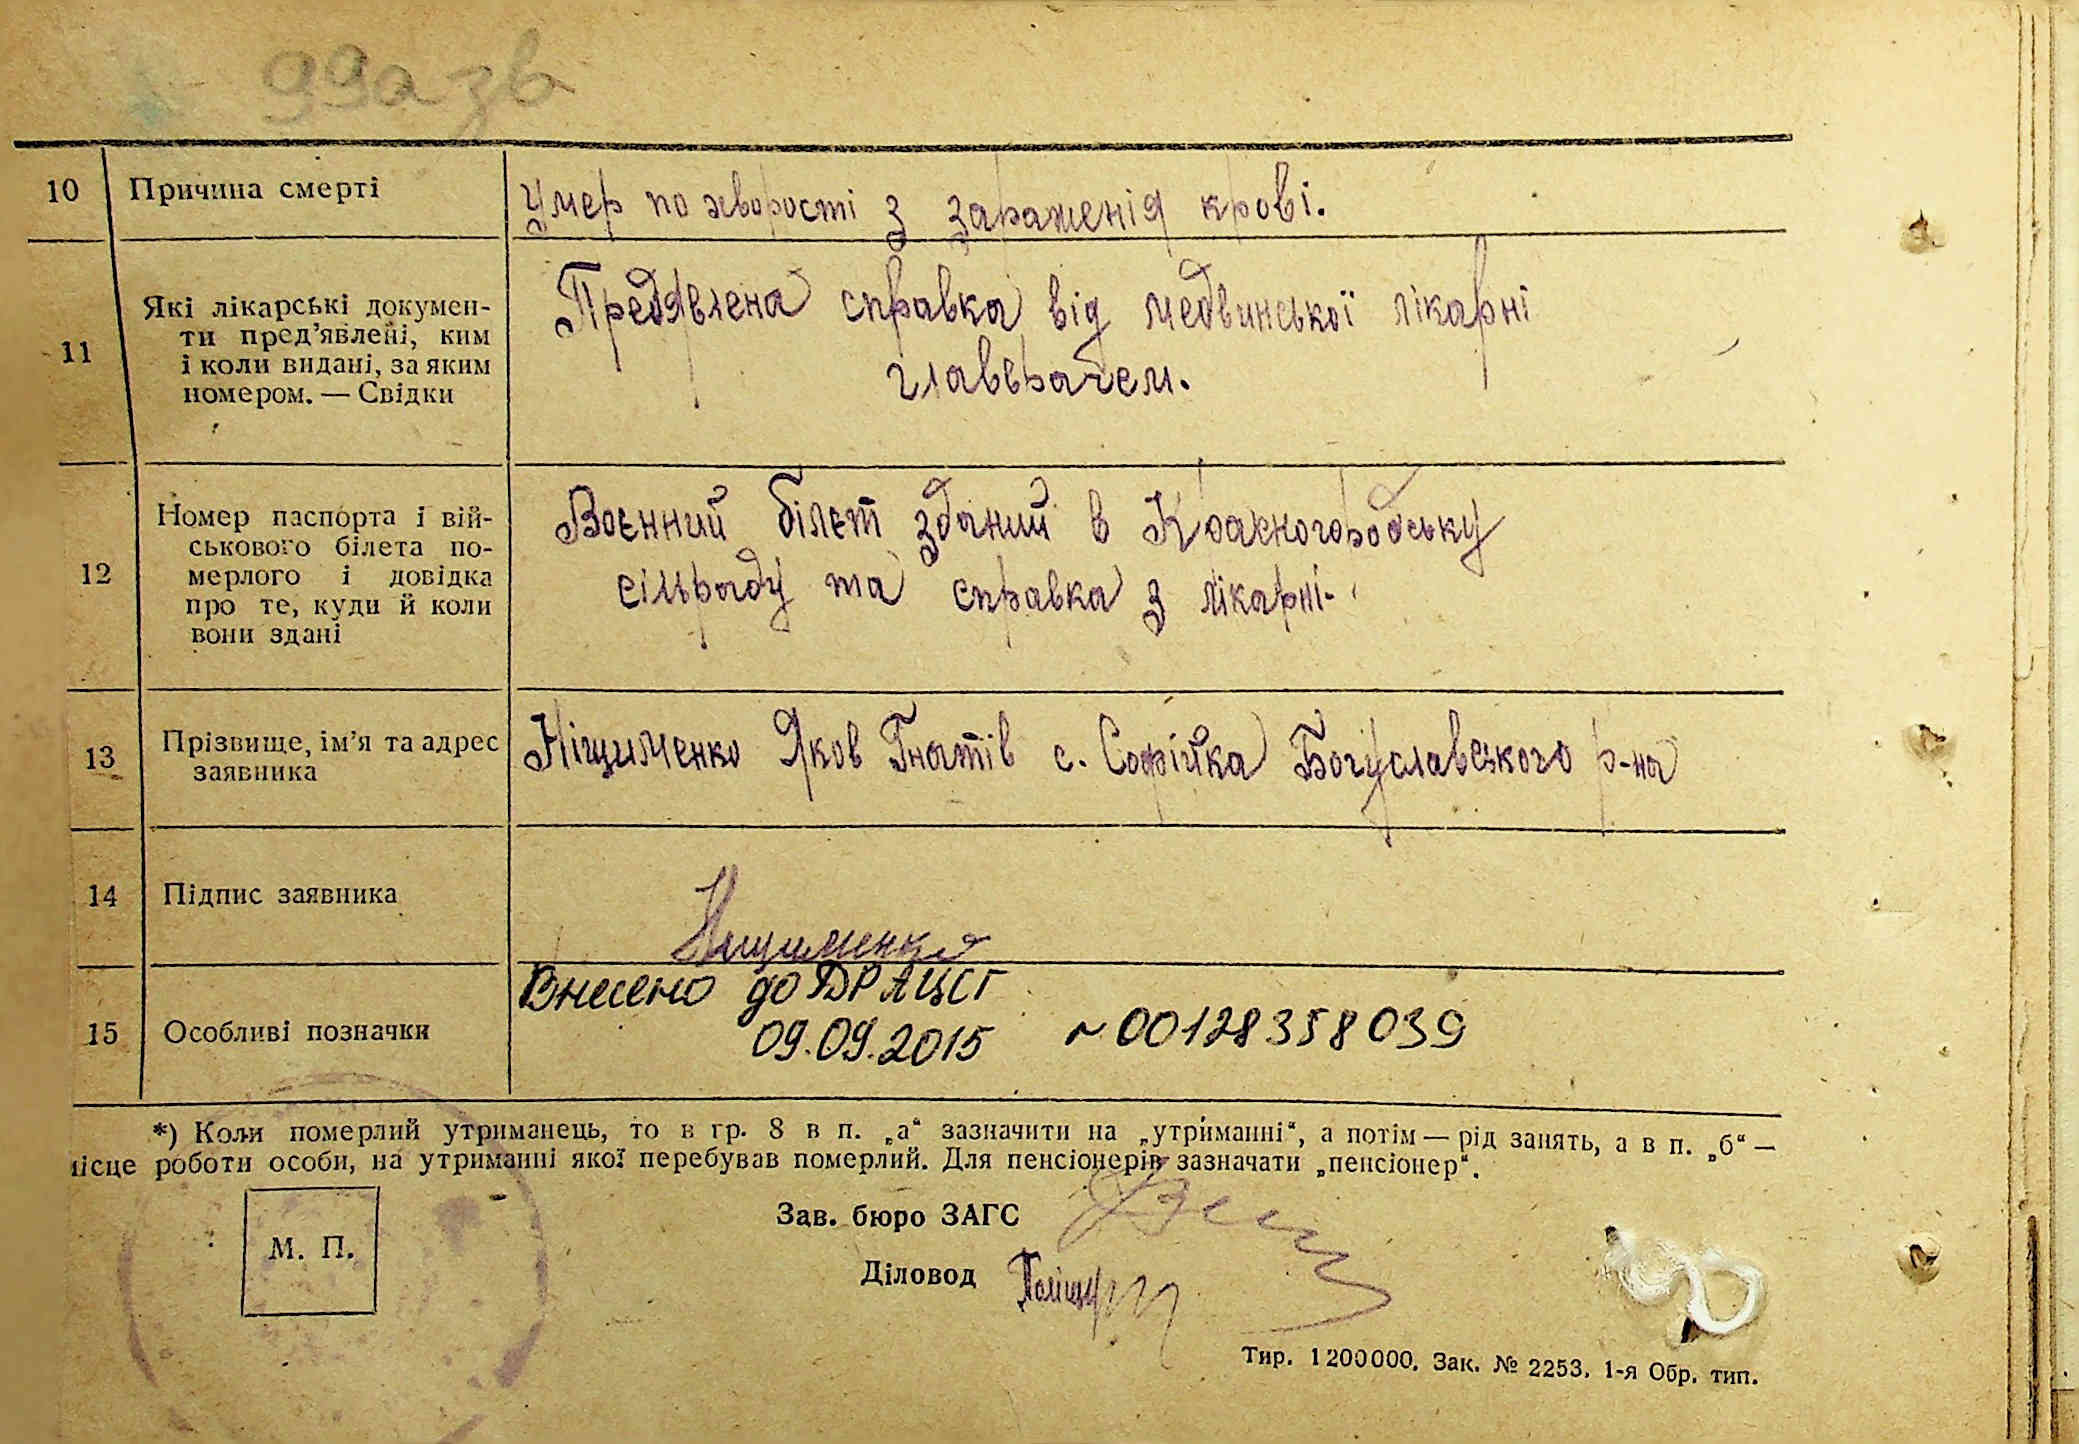 99а зв
10 Причина смерті Умер по хворості з зараженія крові.
11 Які лікарські докумен-
ти пред’явлені, ким
і коли видані, за яким
номером. — Свідки
Предявлена справка від медвинської лікарні
главврачем.
12 Номер паспорта і вій-
ськового білета по-
мерлого і довідка
про те, куди й коли
вони здані
Воєнний білєт зданий в Красногородську
сільраду та справка з лікарні.
13 Прізвище, ім’я та адрес
заявника
Ніщименко Яков Гнатів с. Софійка Богуславського р-на
14 Підпис заявника Нищименко
15 Особливі позначки
Внесено до ДРАЦСГ
09.09.2015 № 00128358039
*) Коли померлий утриманець, то в гр. 8 в п. „а“ зазначити на „утриманні“, а потім — рід занять, а в п. „б“ —
місце роботи особи, на утриманні якої перебував померлий. Для пенсіонерів зазначати „пенсіонер“.
М. П.
Зав. бюро ЗАГС
Діловод
Тир. 1200000. Зак. № 2253. 1-я Обр. тип.